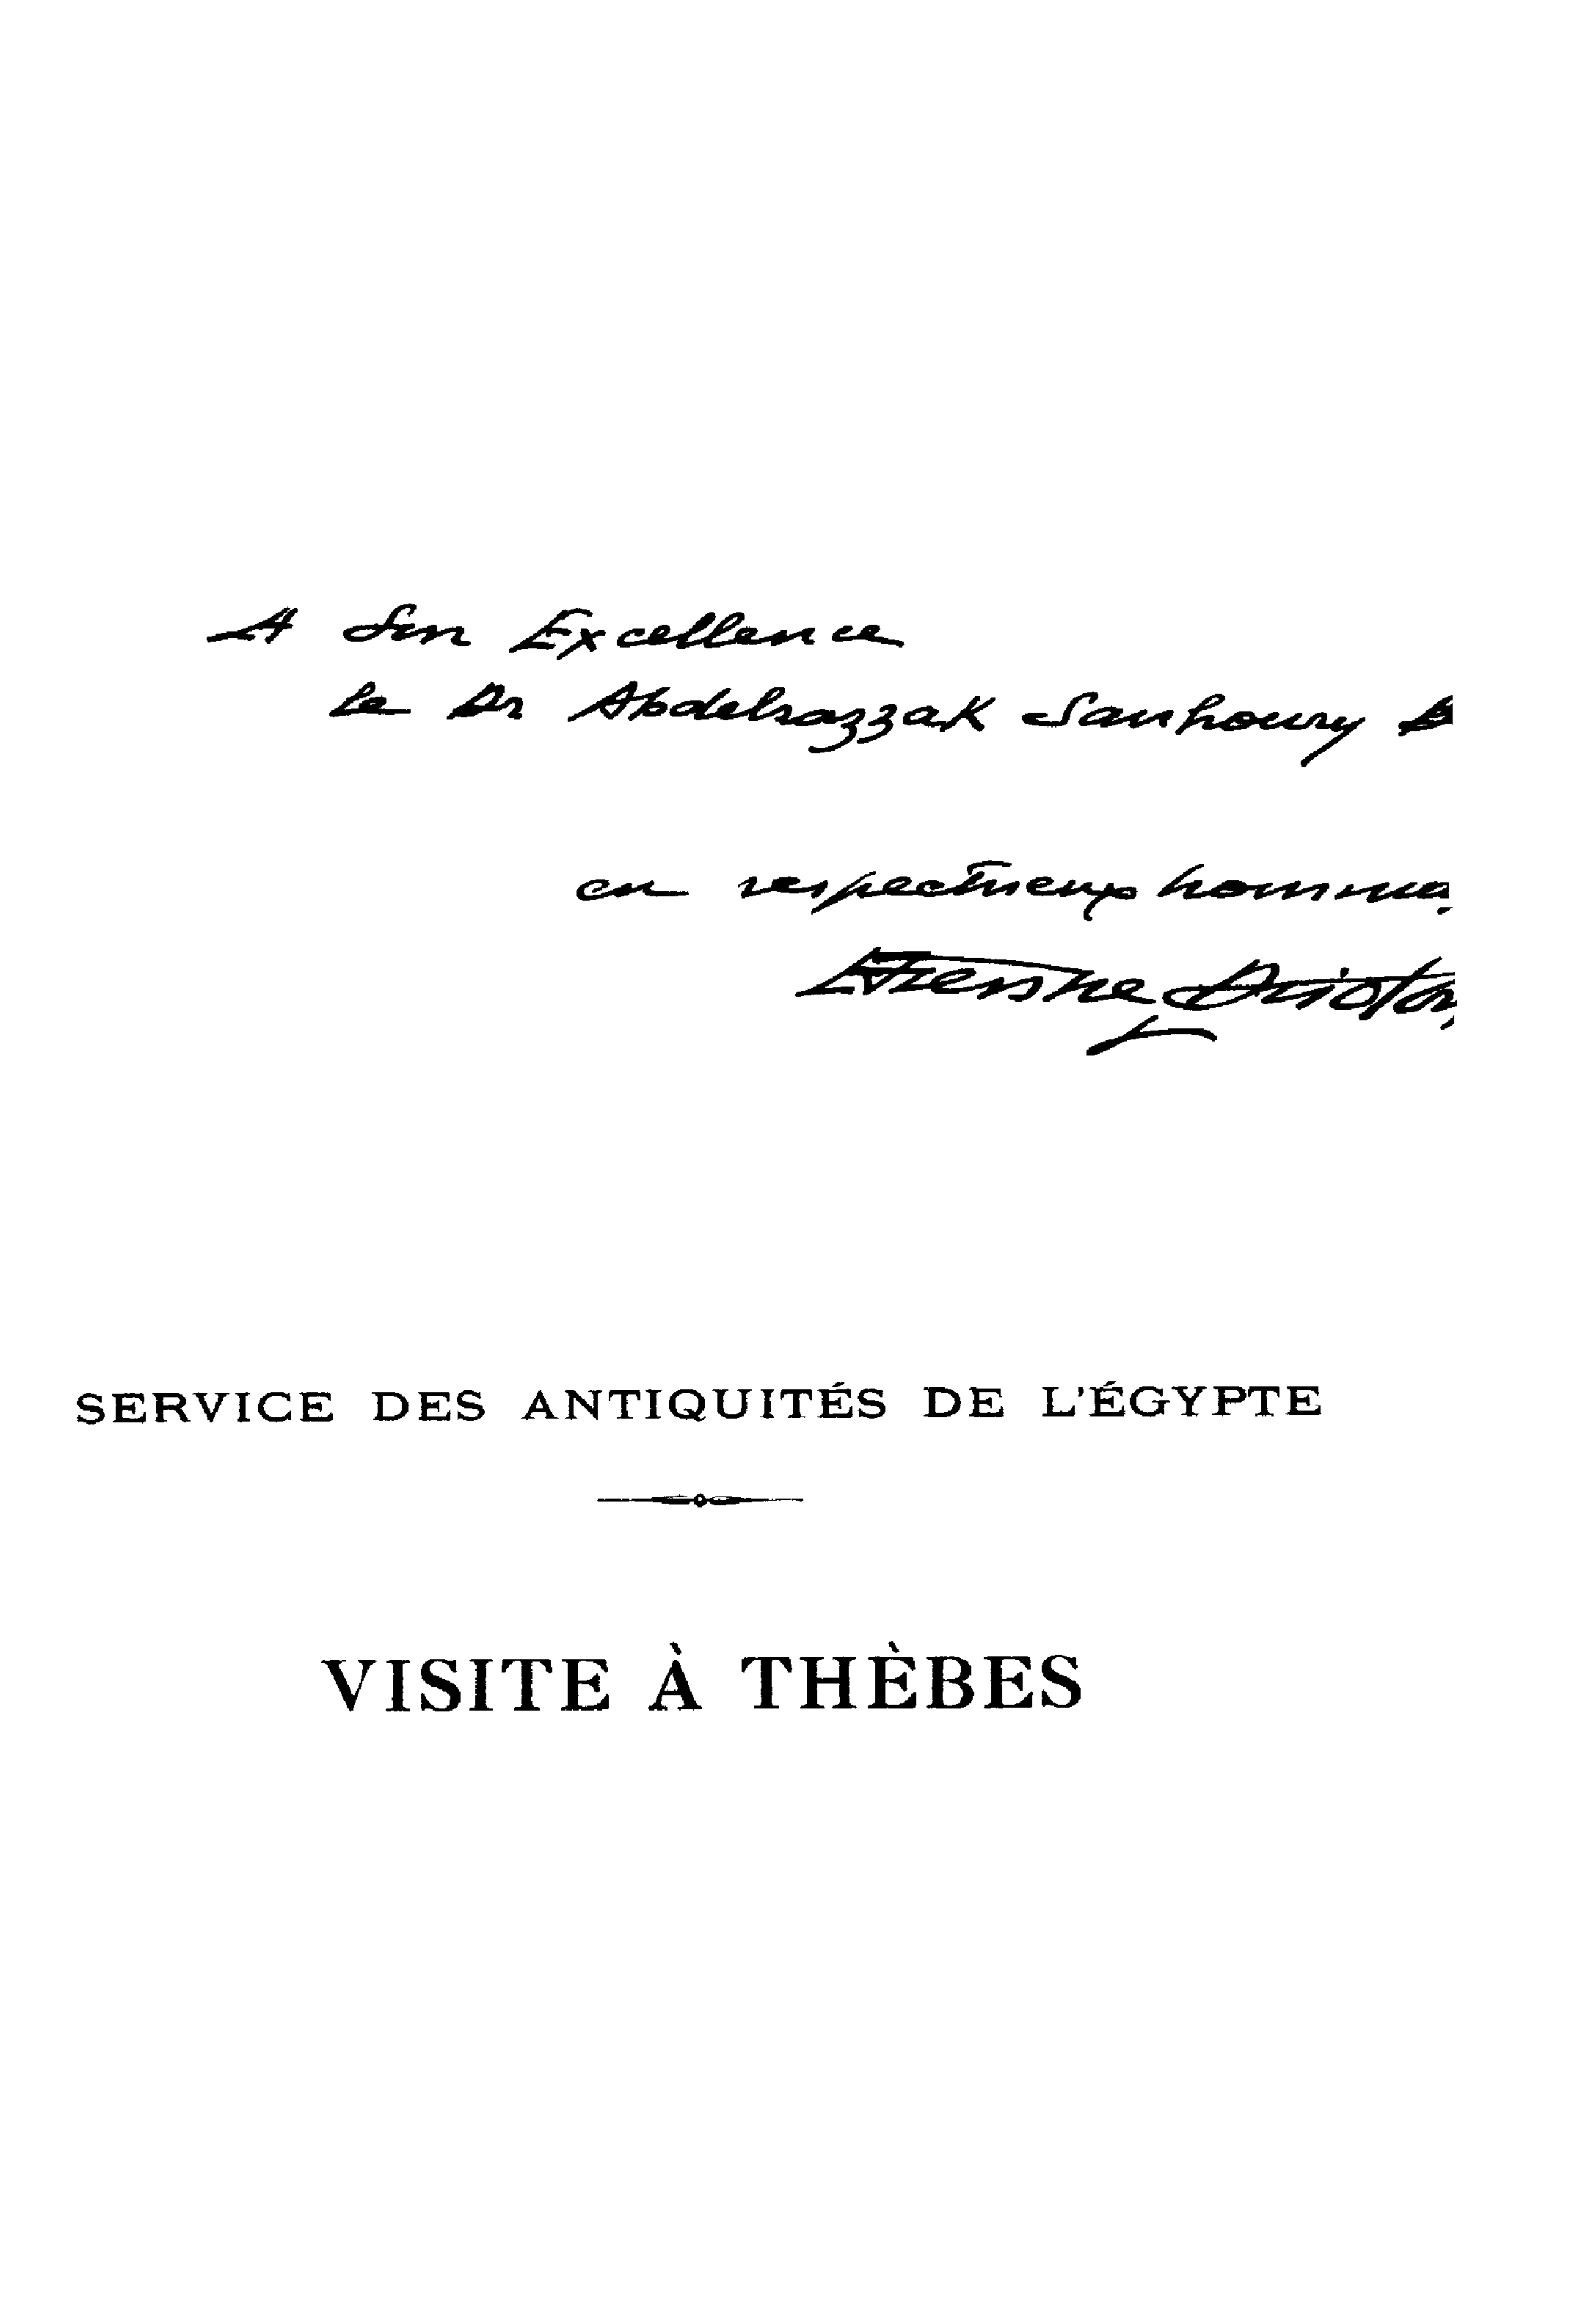 A Son Excellence
le Dr Abdelrazzak Sanhoury
en respectueux homma
Etienne Drioton
SERVICE DES ANTIQUITÉS DE L'ÉGYPTE
VISITE À THÈBES